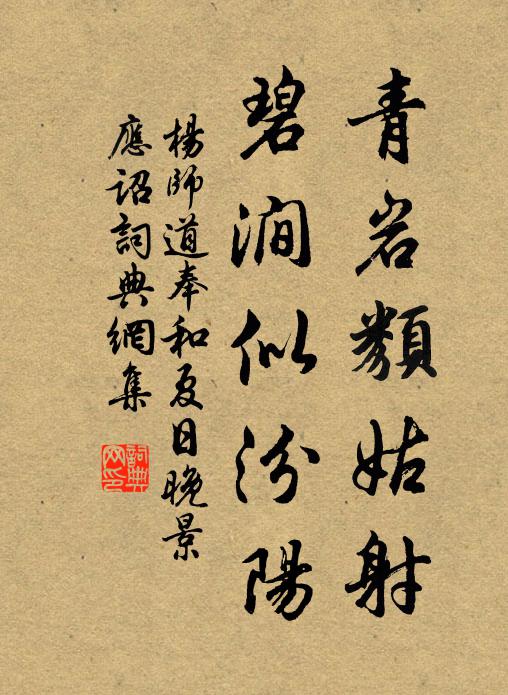 青岩類姑射
碧澗似汾陽
楊師道奉和夏日晚景
應詔詞典網集
詞典网印